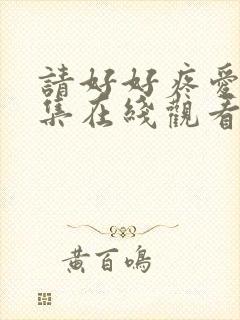 請好好疼愛
集在綫觀看
黃百鳴